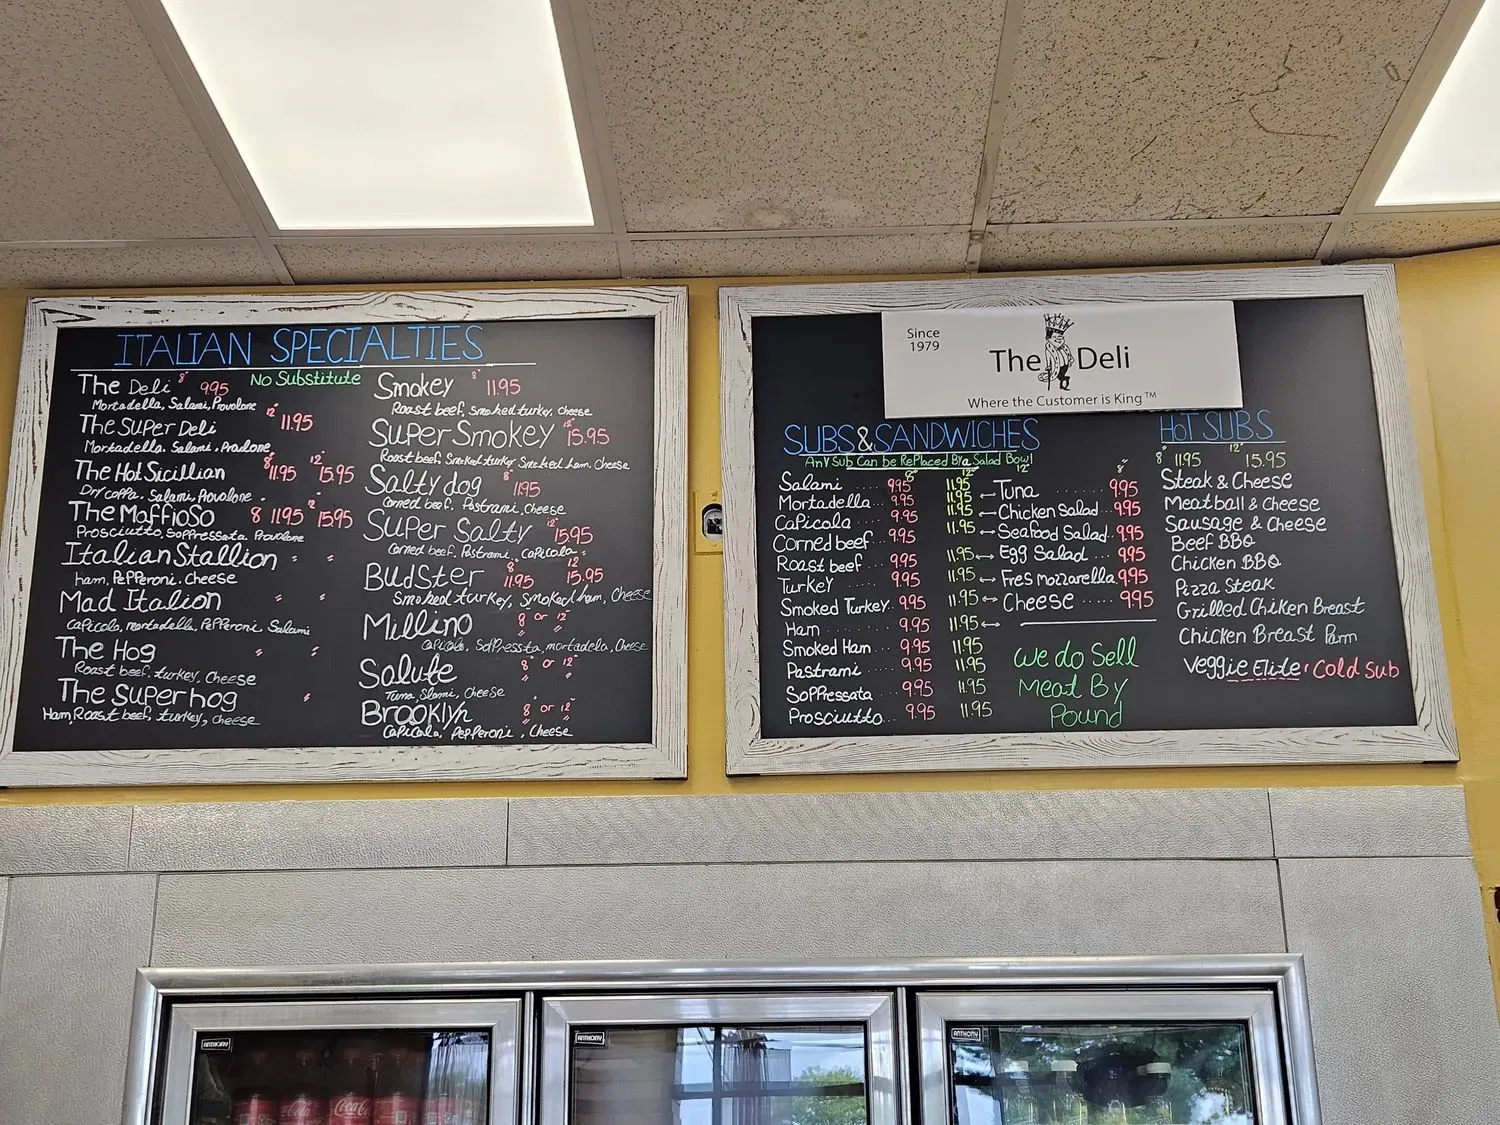 ITALIAN SPECIALTIES
The Deli 8" 9.95 No Substitute
Mortadella, Salami, Provolone
The Super Deli 12" 11.95
Mortadella, Salami, Provlone
The Hot Sicillian 8" 11.95 12" 15.95
Dry coppa, Salami, Provolone
The Maffioso 8 11.95 12" 15.95
Prosciutto, Soppressata, Provolone
Italian Stallion " "
ham, Pepperoni, cheese
Mad Italion " "
capicola, mortadella, Pepperoni, Salami
The Hog " "
Roast beef, turkey, Cheese
The Super hog "
Ham, Roast beef, turkey, cheese
Smokey 8" 11.95
Roast beef, Smoked turkey, cheese
Super Smokey 12" 15.95
Roast beef, Smoked turky, Smoked ham, cheese
Salty dog 8" 11.95
Corned beef, Pastrami, cheese
Super Salty 12" 15.95
Corned beef, Pastrami, capicola
Budster 8" 11.95 12" 15.95
Smoked turkey, Smoked ham, Cheese
Millino 8" or 12"
capicola, Soppressta, mortadela, Cheese
Salute 8" or 12"
Tuna, Slami, Cheese
Brooklyn 8" or 12"
Capicola, Pepperoni, Cheese
Since
1979
The Deli
Where the Customer is King™
SUBS & SANDWICHES
Any Sub Can be Replaced By a Salad Bowl
8" 12" 12" 8"
Salami 9.95 11.95
Mortadella 9.95 11.95
Capicola 9.95 11.95
Corned beef 9.95 11.95
Roast beef 9.95 11.95
Turkey 9.95 11.95
Smoked Turkey 9.95 11.95
Ham 9.95 11.95
Smoked Ham 9.95 11.95
Pastrami 9.95 11.95
Soppressata 9.95 11.95
Prosciutto 9.95 11.95
Tuna 9.95
Chicken Salad 9.95
Seafood Salad 9.95
Egg Salad 9.95
Fres mozzarella 9.95
Cheese 9.95
we do Sell
Meat By
Pound
HOT SUBS
8" 11.95 12" 15.95
Steak & Cheese
Meatball & Cheese
Sausage & Cheese
Beef BBQ
Chicken BBQ
Pizza Steak
Grilled Chiken Breast
Chicken Breast Parm
Veggie Elite, Cold Sub
ANTHONY
ANTHONY
ANTHONY
Coca-Cola